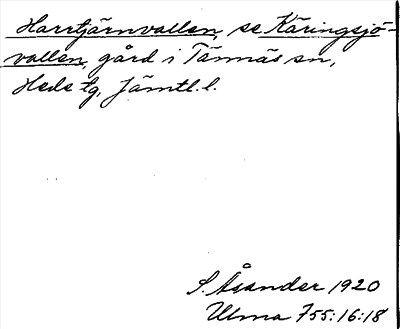 Harrtjärnvallen, se Käringsjö-
vallen, gård i Tännäs sn,
Heds tg, Jämtl. l.
S. Åsander 1920
Ulma 755:16:18